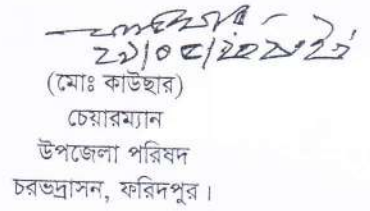 (মোঃ কাউছার)
চেয়ারম্যান
উপজেলা পরিষদ
চরভদ্রাসন, ফরিদপুর।